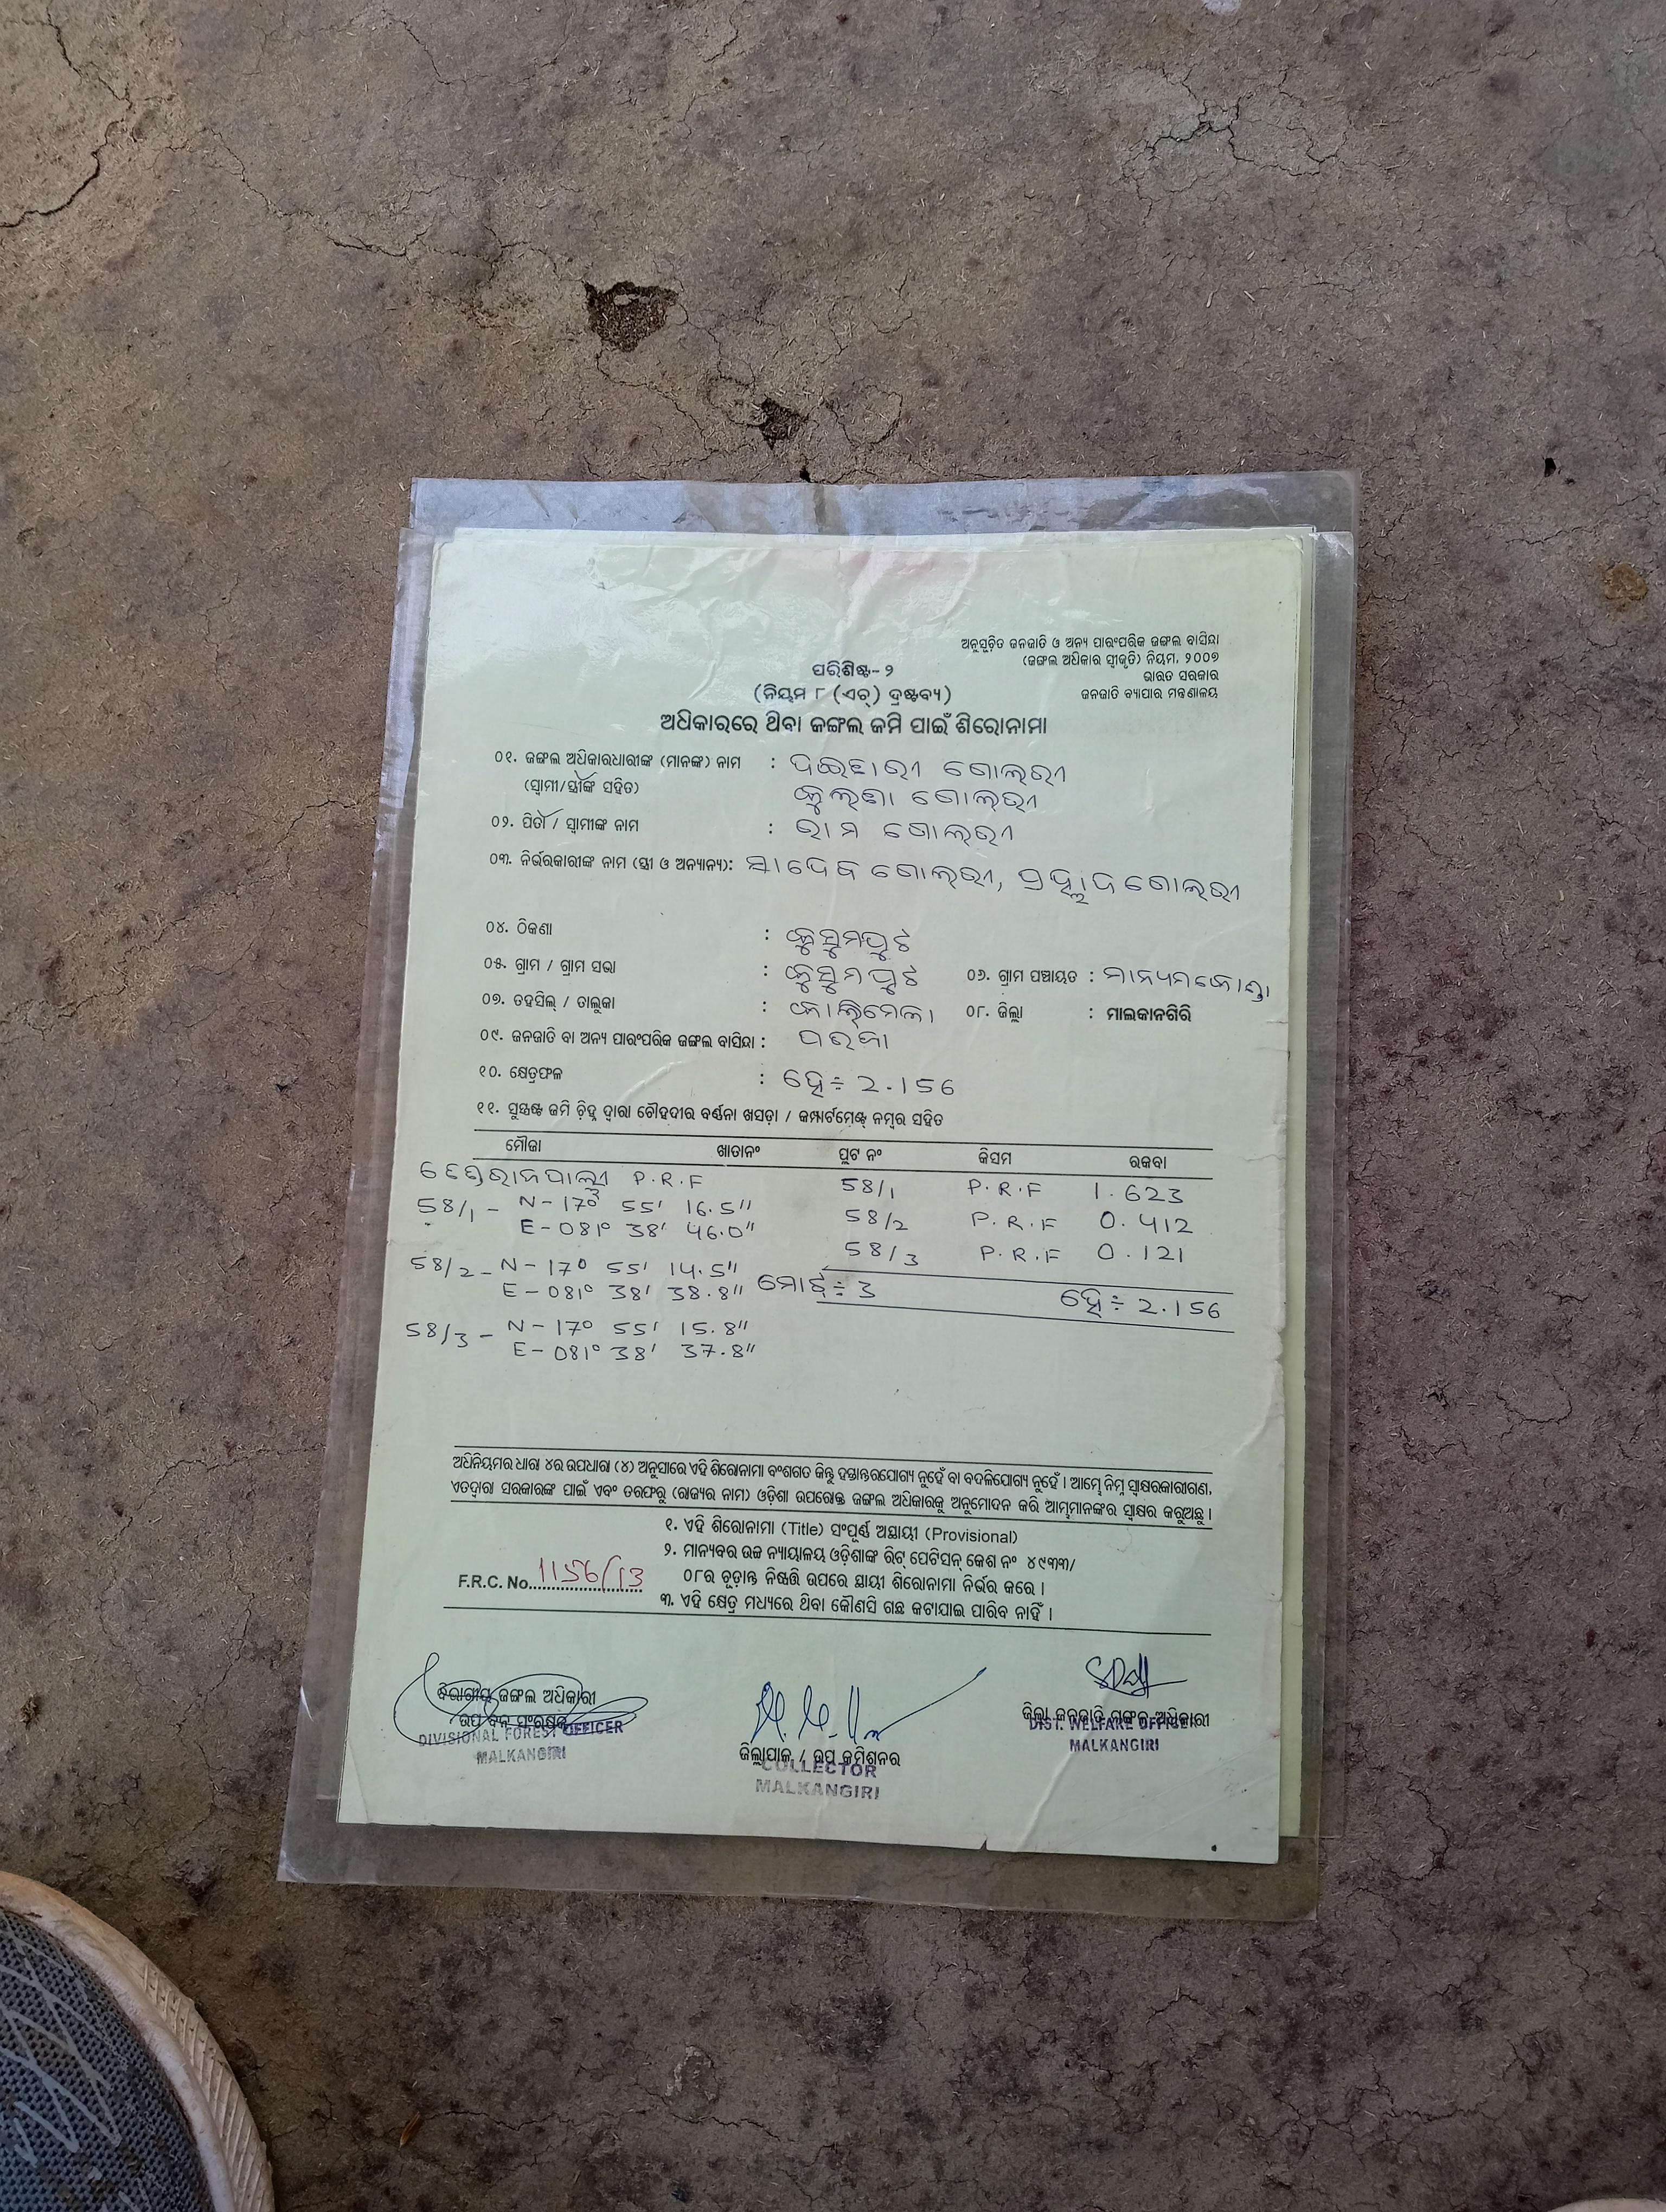 ଅନୁସୂଚିତ ଜନଜାତି ଓ ଅନ୍ୟ ପାରଂପରିକ ଜଙ୍ଗଲ ବାସିନ୍ଦା
(ଜଙ୍ଗଲ ଅଧିକାର ସ୍ୱୀକୃତି) ନିୟମ, ୨୦୦୭
ଭାରତ ସରକାର
ଜନଜାତି ବ୍ୟାପାର ମନ୍ତ୍ରଣାଳୟ
ପରିଶିଷ୍ଟ-୨
(ନିୟମ ୮ (ଏଚ୍) ଦ୍ରଷ୍ଟବ୍ୟ)
ଅଧିକାରରେ ଥିବା ଜଙ୍ଗଲ ଜମି ପାଇଁ ଶିରୋନାମା
୦୧. ଜଙ୍ଗଲ ଅଧିକାରଧାରୀଙ୍କ (ମାନଙ୍କ) ନାମ : ଗୋଲରୀ
(ସ୍ୱାମୀ/ସ୍ତ୍ରୀଙ୍କ ସହିତ) ଗୋଲରୀ
୦୨. ପିତା / ସ୍ୱାମୀଙ୍କ ନାମ : ରାମ ଗୋଲରୀ
୦୩. ନିର୍ଭରକାରୀଙ୍କ ନାମ (ସ୍ତ୍ରୀ ଓ ଅନ୍ୟାନ୍ୟ): ଗୋଲରୀ, ପ୍ରହ୍ଲାଦ ଗୋଲରୀ
୦୪. ଠିକଣା : କୁସୁମପୁଟ
୦୫. ଗ୍ରାମ / ଗ୍ରାମ ସଭା : କୁସୁମପୁଟ ୦୬. ଗ୍ରାମ ପଞ୍ଚାୟତ : ମାନ୍ୟମକୋଣ୍ଡା
୦୭. ତହସିଲ୍ / ତାଲୁକା : କାଲିମେଳା ୦୮. ଜିଲ୍ଲା : ମାଲକାନଗିରି
୦୯. ଜନଜାତି ବା ଅନ୍ୟ ପାରଂପରିକ ଜଙ୍ଗଲ ବାସିନ୍ଦା : ପରଜା
୧୦. କ୍ଷେତ୍ରଫଳ : ହେ÷ 2.156
୧୧. ସୁସ୍ପଷ୍ଟ ଜମି ଚିହ୍ନ ଦ୍ୱାରା ଚୌହଦୀର ବର୍ଣ୍ଣନା ଖସଡ଼ା / କମ୍ପାର୍ଟମେଣ୍ଟ୍ ନମ୍ବର ସହିତ
ମୌଜା ଖାତାନଂ ପ୍ଲଟ ନଂ କିସମ ରକବା
P.R.F 58/1 P.R.F 1.623
58/1 - N-17° 55' 16.5" 58/2 P.R.F 0.412
E-081° 38' 46.0" 58/3 P.R.F 0.121
58/2 - N-17° 55' 14.5"
E-081° 38' 38.8" ମୋଟ÷ 3 ହେ÷ 2.156
58/3 - N-17° 55' 15.8"
E-081° 38' 37.8"
ଅଧିନିୟମର ଧାରା ୪ର ଉପଧାରା (୪) ଅନୁସାରେ ଏହି ଶିରୋନାମା ବଂଶଗତ କିନ୍ତୁ ହସ୍ତାନ୍ତରଯୋଗ୍ୟ ନୁହେଁ ବା ବଦଳିଯୋଗ୍ୟ ନୁହେଁ । ଆମ୍ଭେ ନିମ୍ନ ସ୍ୱାକ୍ଷରକାରୀଗଣ,
ଏତଦ୍ୱାରା ସରକାରଙ୍କ ପାଇଁ ଏବଂ ତରଫରୁ (ରାଜ୍ୟର ନାମ) ଓଡ଼ିଶା ଉପରୋକ୍ତ ଜଙ୍ଗଲ ଅଧିକାରକୁ ଅନୁମୋଦନ କରି ଆମ୍ଭମାନଙ୍କର ସ୍ୱାକ୍ଷର କରୁଅଛୁ ।
୧. ଏହି ଶିରୋନାମା (Title) ସଂପୂର୍ଣ୍ଣ ଅସ୍ଥାୟୀ (Provisional)
୨. ମାନ୍ୟବର ଉଚ୍ଚ ନ୍ୟାୟାଳୟ ଓଡ଼ିଶାଙ୍କ ରିଟ୍ ପେଟିସନ୍ କେଶ ନଂ ୪୯୩୩/
୦୮ର ଚୂଡ଼ାନ୍ତ ନିଷ୍ପତ୍ତି ଉପରେ ସ୍ଥାୟୀ ଶିରୋନାମା ନିର୍ଭର କରେ ।
F.R.C. No. 1156/13
୩. ଏହି କ୍ଷେତ୍ର ମଧ୍ୟରେ ଥିବା କୌଣସି ଗଛ କଟାଯାଇ ପାରିବ ନାହିଁ ।
ବିଭାଗୀୟ ଜଙ୍ଗଲ ଅଧିକାରୀ
ଉପ ବନ ସଂରକ୍ଷକ
DIVISIONAL FOREST OFFICER
MALKANGIRI
ଜିଲ୍ଲାପାଳ / ଉପ କମିଶନର
COLLECTOR
MALKANGIRI
ଜିଲ୍ଲା ଜନଜାତି ମଙ୍ଗଳ ଅଧିକାରୀ
DIST. WELFARE OFFICER
MALKANGIRI